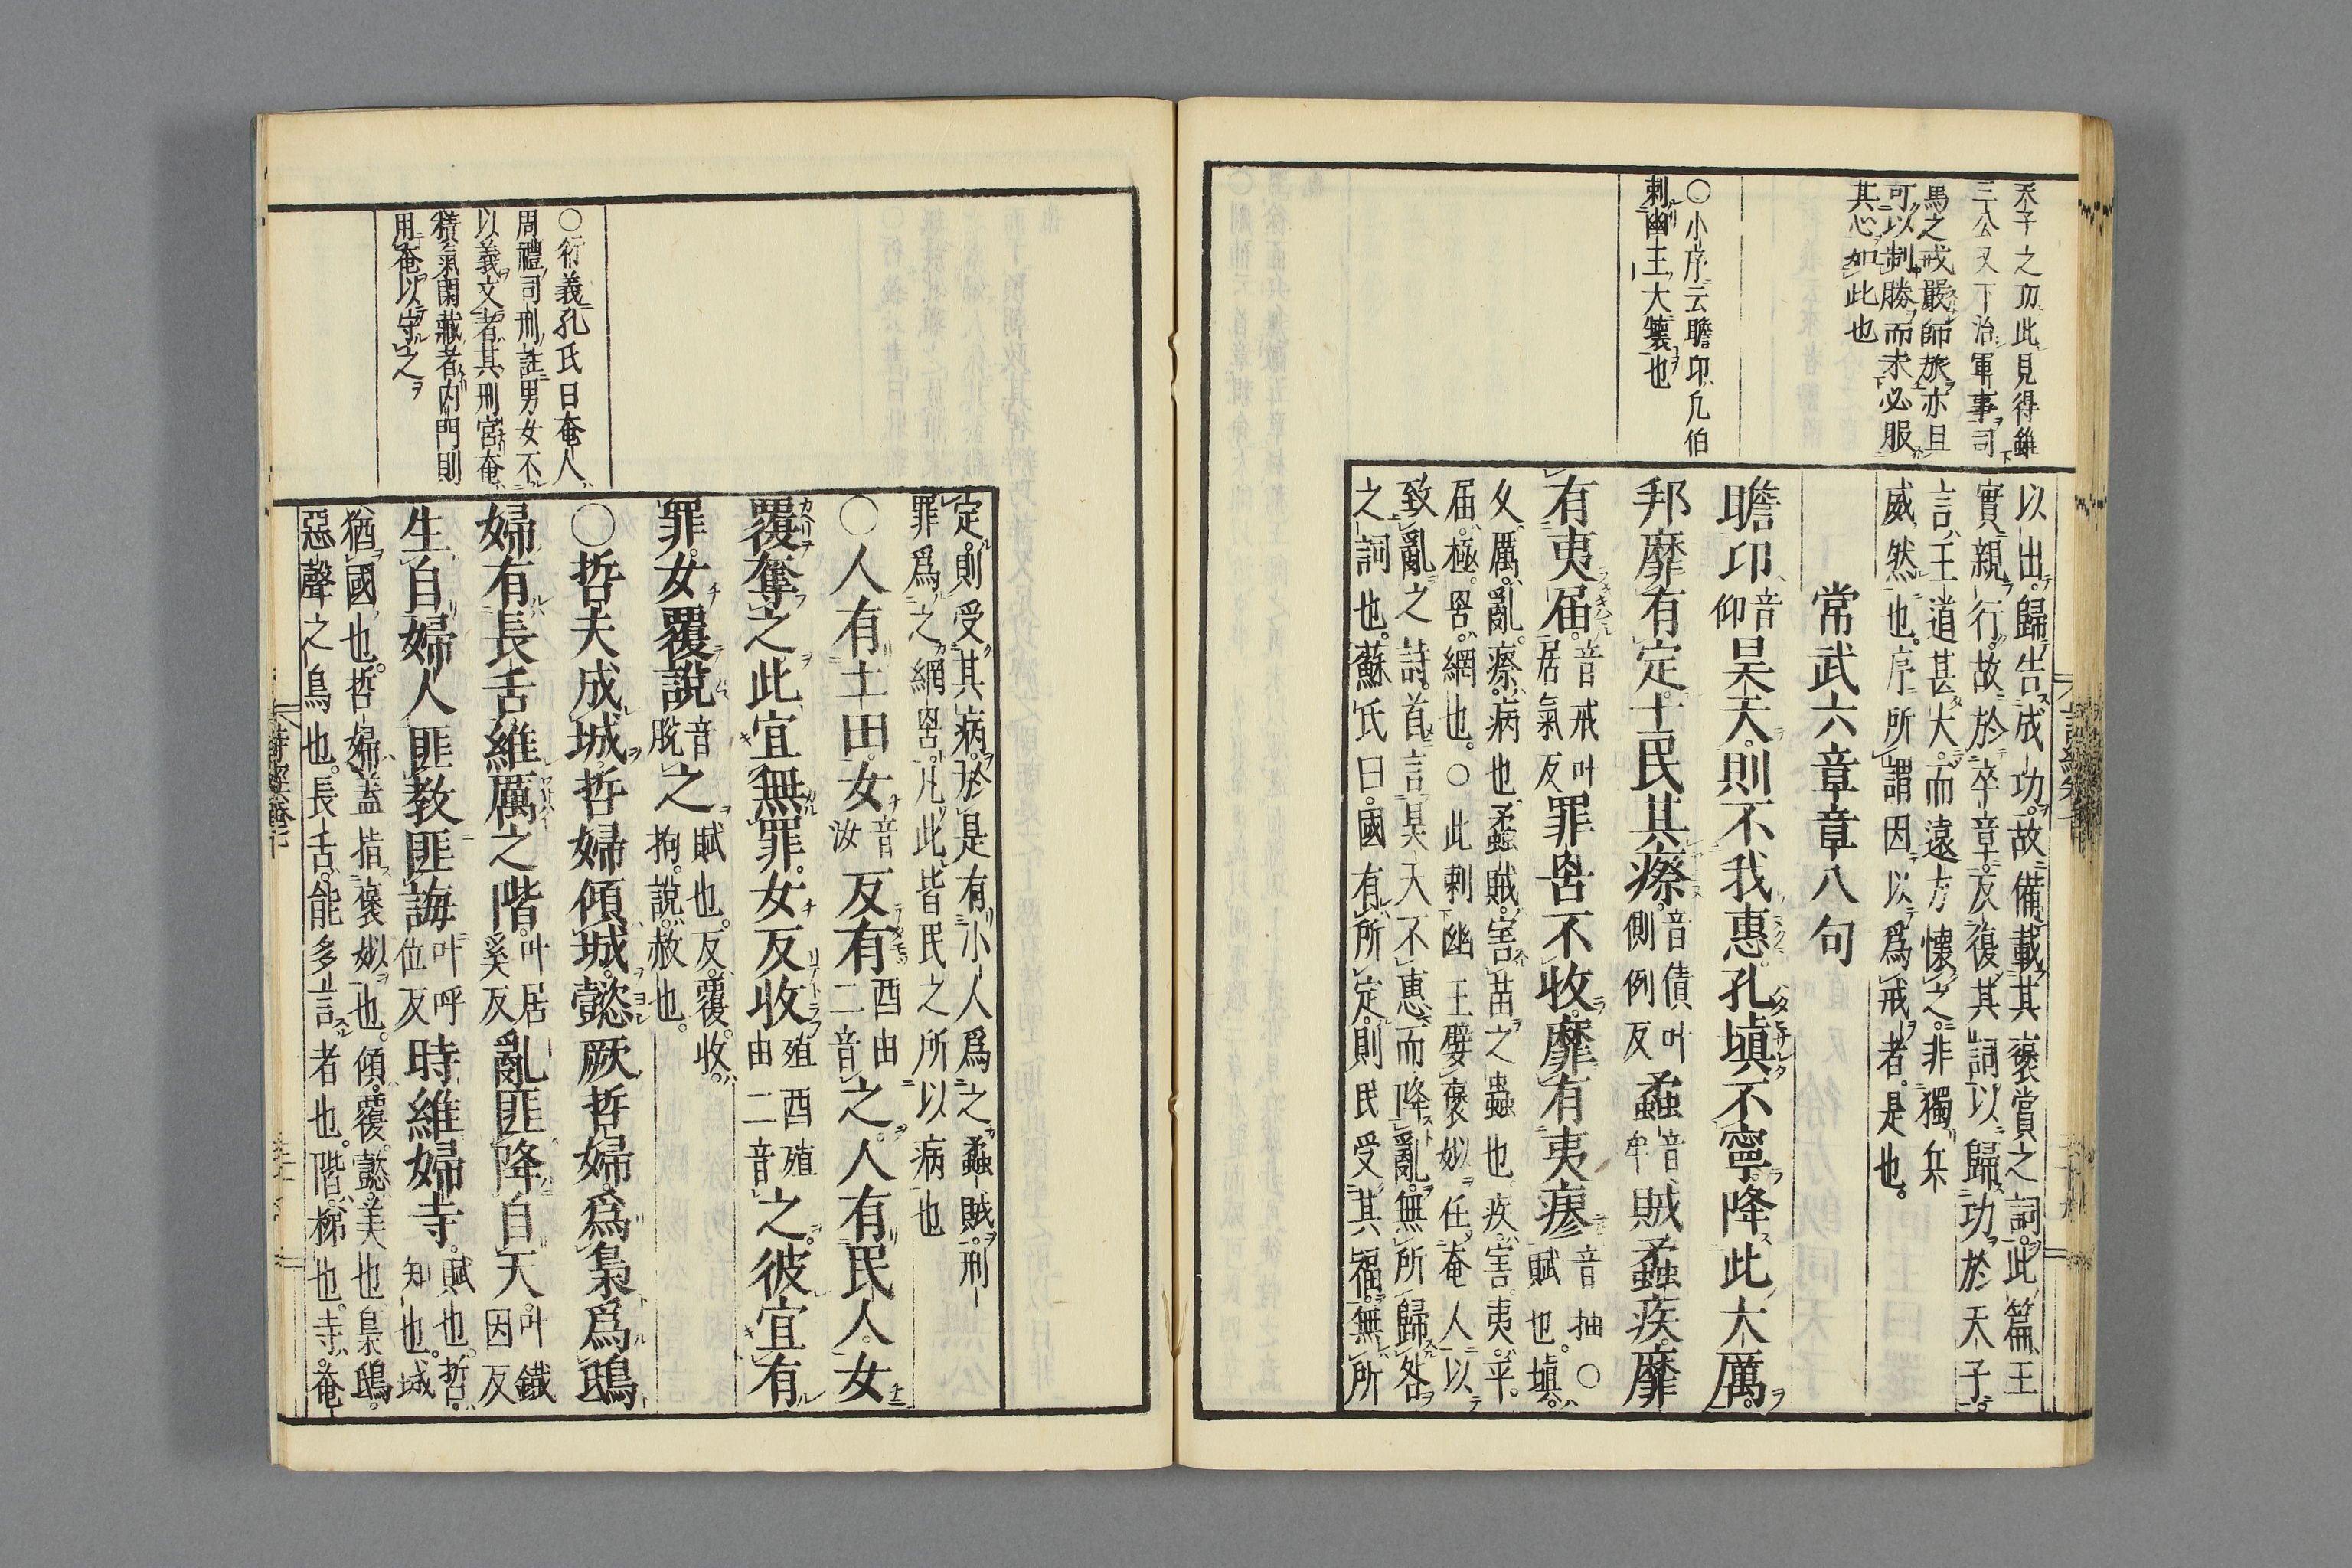 天子之功此見得雖
三公又下治軍事司
馬之戒嚴師旅亦且
可以制勝而求必服
其心如此也
○小序云瞻卬凡伯
刺幽王大壞也
以出歸告成功故備載其褒賞之詞此篇王
實親行故於卒章反復其詞以歸功於天子
言王道甚大而遠方懷之非獨兵
威然也序所謂因以爲戒者是也
常武六章章八句
瞻卬音仰昊天則不我惠孔塡不寧降此大厲
邦靡有定士民其瘵音債叶側例反蟊音牟賊蟊疾靡
有夷届音戒叶居氣反罪罟不收靡有夷瘳音抽○賦也塡
久厲亂瘵病也蟊賊害苗之蟲也疾害夷平
届極罟網也○此刺幽王嬖褒姒任奄人以
致亂之詩首言昊天不惠而降亂無所歸咎
之詞也蘇氏曰國有所定則民受其福無所
定則受其病於是有小人爲之蟊賊刑
罪爲之網罟凡此皆民之所以病也
○人有土田女音汝反有酉由二音之人有民人女
覆奪之此宜無罪女反收殖酉殖由二音之彼宜有
罪女覆說音脫之賦也反覆收拘說赦也
○哲夫成城哲婦傾城懿厥哲婦爲梟爲鴟
婦有長舌維厲之階叶居奚反亂匪降自天叶鐵因反
生自婦人匪教匪誨叶呼位反時維婦寺賦也哲知也城
猶國也哲婦蓋指褒姒也傾覆懿美也梟鴟
惡聲之鳥也長舌能多言者也階梯也寺奄
○衍義孔氏曰奄人
周禮司刑註男女不
以義交者其刑宮奄
積氣閉藏者内門則
用奄以守之